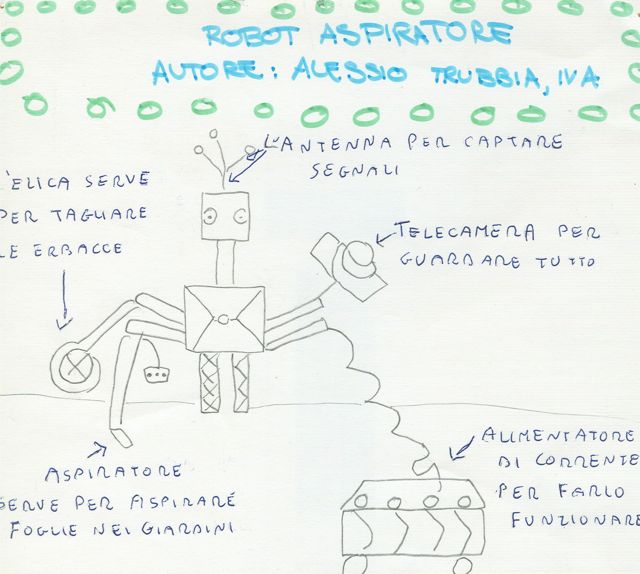 ROBOT ASPIRATORE
AUTORE: ALESSIO TRUBBIA, IVA
L'ANTENNA PER CAPTARE
SEGNALI
'ELICA SERVE
PER TAGLIARE
LE ERBACCE
TELECAMERA PER
GUARDARE TUTTO
ASPIRATORE
SERVE PER ASPIRARE
FOGLIE NEI GIARDINI
ALIMENTATORE
DI CORRENTE
PER FARLO
FUNZIONARE